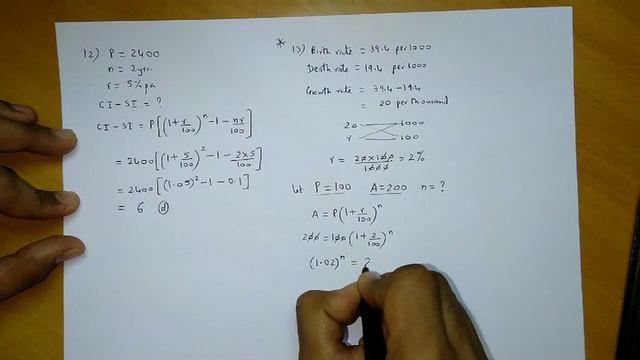 12) P = 2400
n = 2yrs.
r = 5% pa
CI - SI = ?
CI - SI = P[(1 + r/100)^n - 1 - nr/100]
= 2400[(1 + 5/100)^2 - 1 - 2×5/100]
= 2400[(1.05)^2 - 1 - 0.1]
= 6 (d)
* 13) Birth rate = 39.4 per 1000
Death rate = 19.4 per 1000
Growth rate = 39.4 - 19.4
= 20 per thousand
20 1000
r 100
r = 20×100/1000 = 2%
let P = 100 A = 200 n = ?
A = P(1 + r/100)^n
200 = 100(1 + 2/100)^n
(1.02)^n = 2